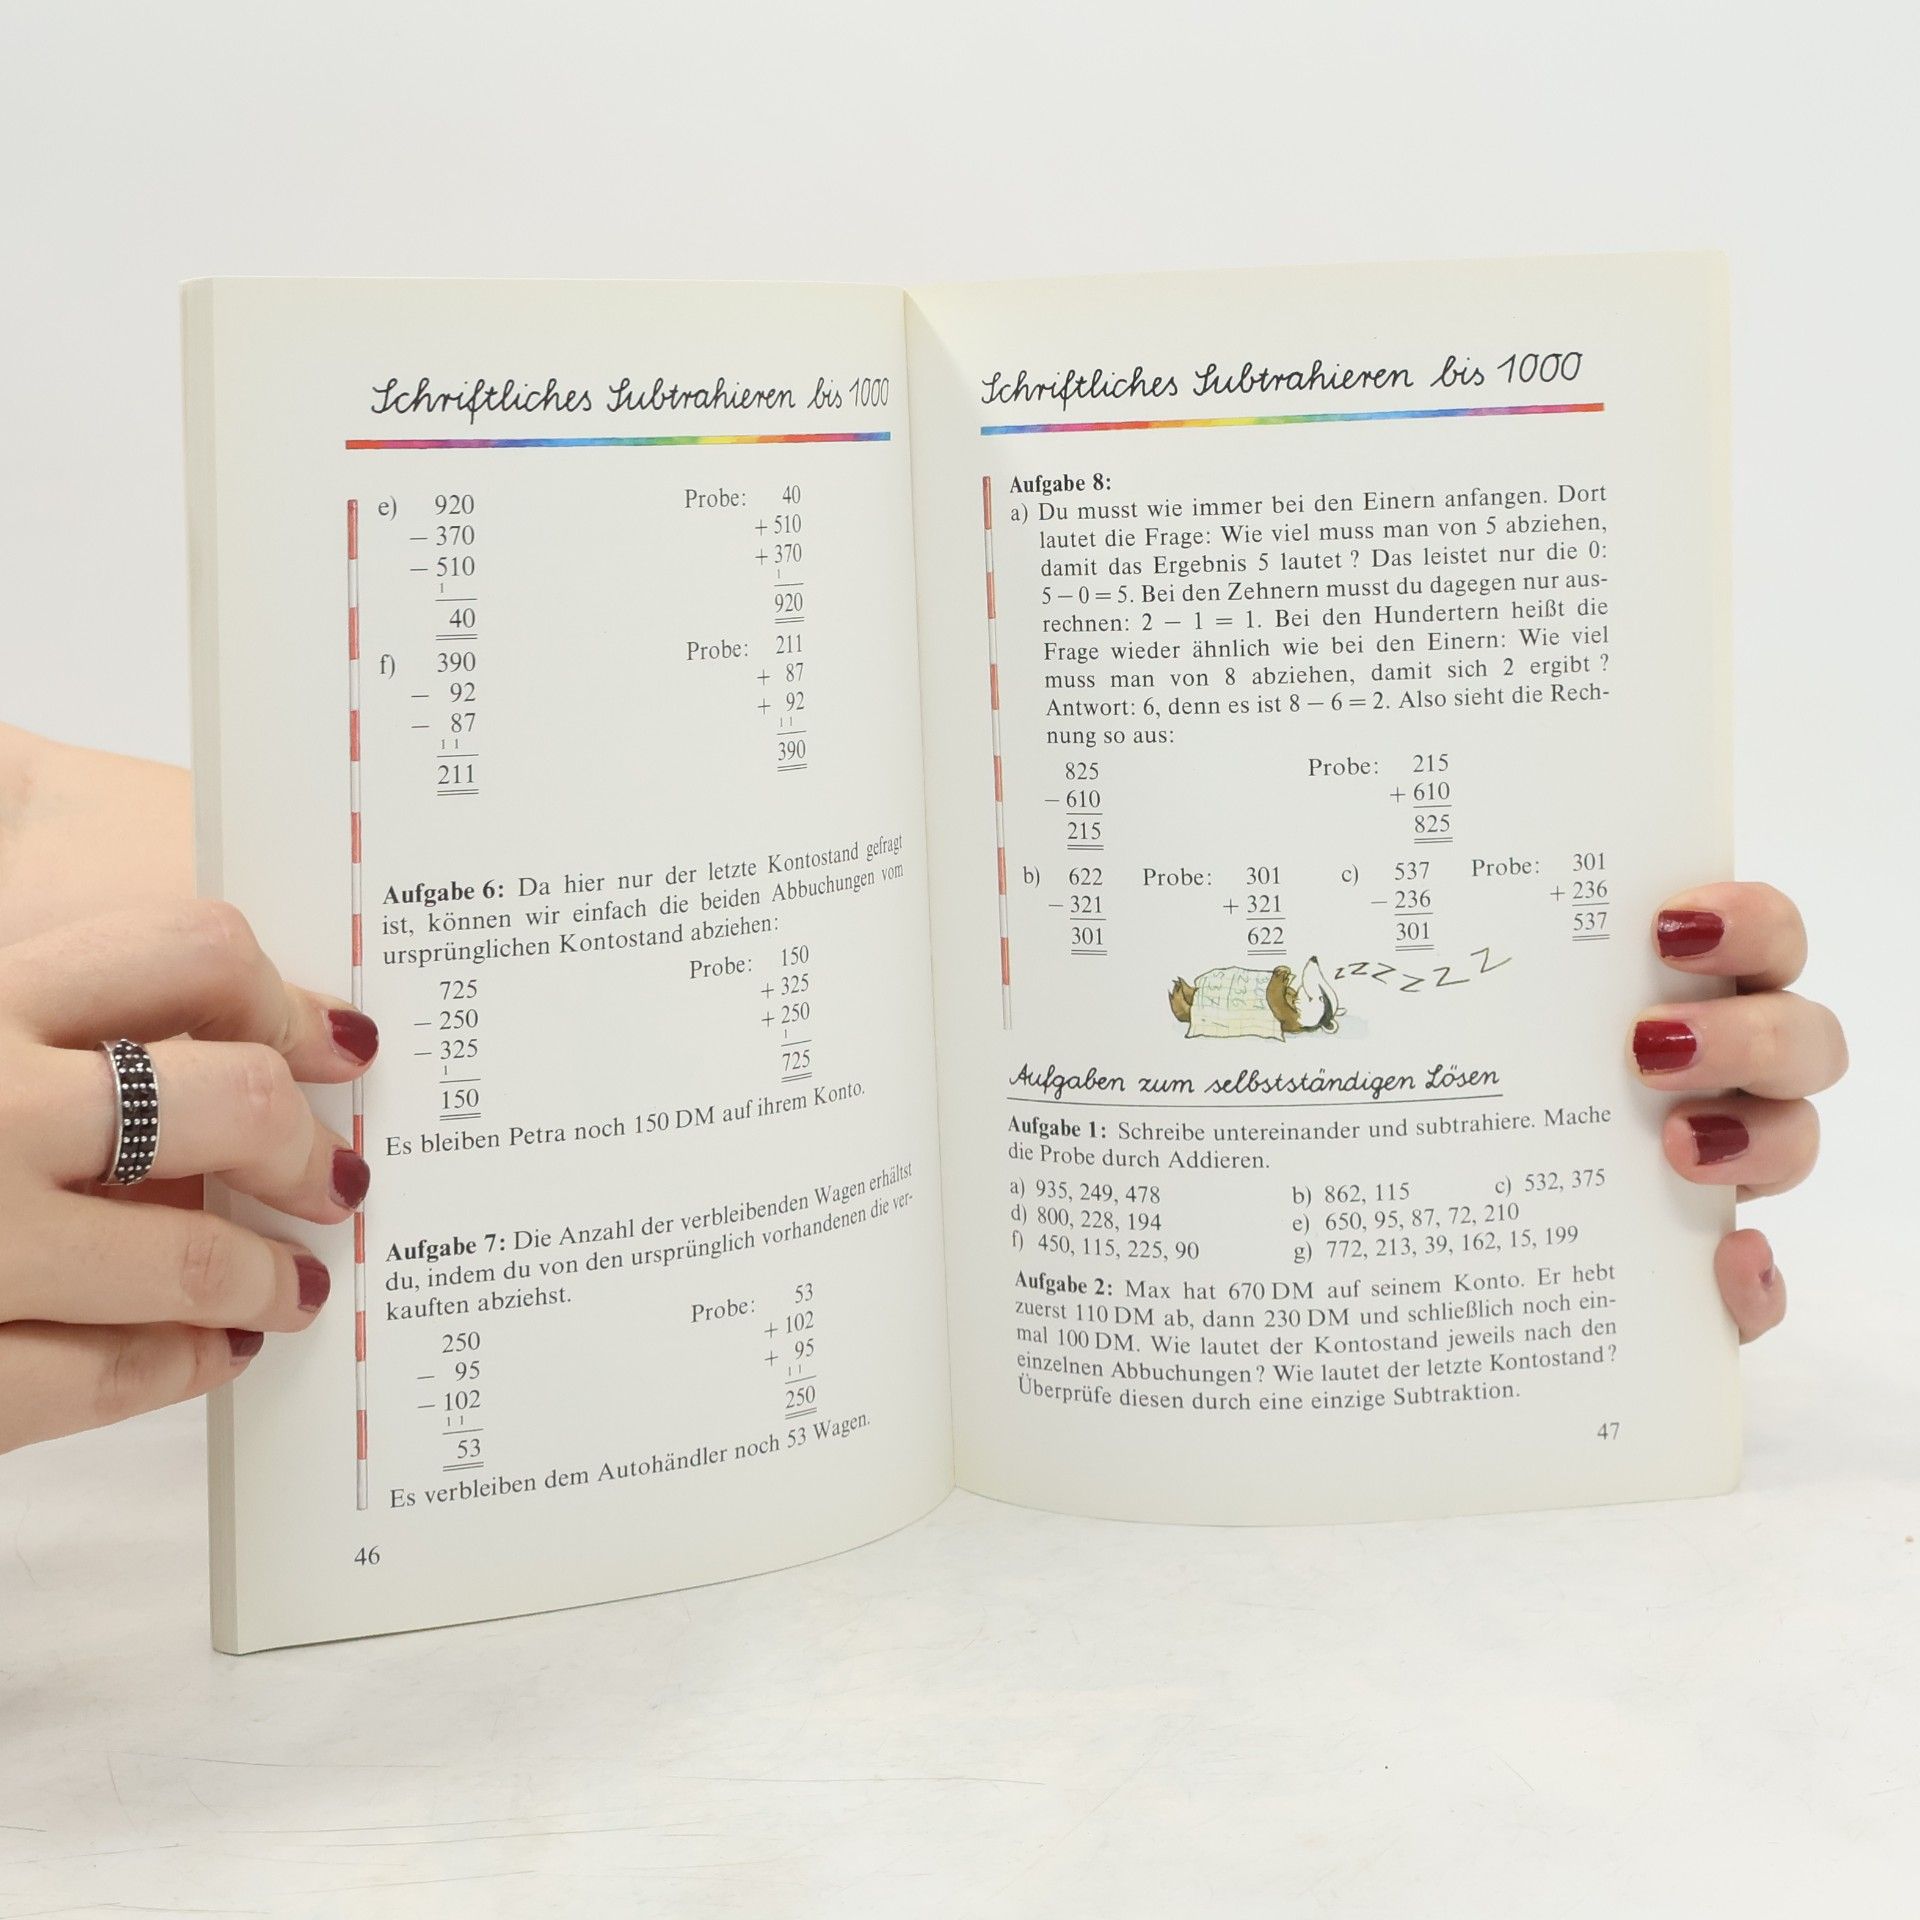 Schriftliches Subtrahieren bis 1000
e) 920 Probe: 40
– 370 + 510
– 510 + 370
1 1
40 920
f) 390 Probe: 211
– 92 + 87
– 87 + 92
1 1 1 1
211 390
Aufgabe 6: Da hier nur der letzte Kontostand gefragt
ist, können wir einfach die beiden Abbuchungen vom
ursprünglichen Kontostand abziehen:
725 Probe: 150
– 250 + 325
– 325 + 250
1 1
150 725
Es bleiben Petra noch 150 DM auf ihrem Konto.
Aufgabe 7: Die Anzahl der verbleibenden Wagen erhältst
du, indem du von den ursprünglich vorhandenen die ver-
kauften abziehst.
250 Probe: 53
– 95 + 102
– 102 + 95
1 1 1 1
53 250
Es verbleiben dem Autohändler noch 53 Wagen.
46
Schriftliches Subtrahieren bis 1000
Aufgabe 8:
a) Du musst wie immer bei den Einern anfangen. Dort
lautet die Frage: Wie viel muss man von 5 abziehen,
damit das Ergebnis 5 lautet? Das leistet nur die 0:
5 – 0 = 5. Bei den Zehnern musst du dagegen nur aus-
rechnen: 2 – 1 = 1. Bei den Hundertern heißt die
Frage wieder ähnlich wie bei den Einern: Wie viel
muss man von 8 abziehen, damit sich 2 ergibt?
Antwort: 6, denn es ist 8 – 6 = 2. Also sieht die Rech-
nung so aus:
825 Probe: 215
– 610 + 610
215 825
b) 622 Probe: 301 c) 537 Probe: 301
– 321 + 321 – 236 + 236
301 622 301 537
zzzzzz
Aufgaben zum selbstständigen Lösen
Aufgabe 1: Schreibe untereinander und subtrahiere. Mache
die Probe durch Addieren.
a) 935, 249, 478 b) 862, 115 c) 532, 375
d) 800, 228, 194 e) 650, 95, 87, 72, 210
f) 450, 115, 225, 90 g) 772, 213, 39, 162, 15, 199
Aufgabe 2: Max hat 670 DM auf seinem Konto. Er hebt
zuerst 110 DM ab, dann 230 DM und schließlich noch ein-
mal 100 DM. Wie lautet der Kontostand jeweils nach den
einzelnen Abbuchungen? Wie lautet der letzte Kontostand?
Überprüfe diesen durch eine einzige Subtraktion.
47